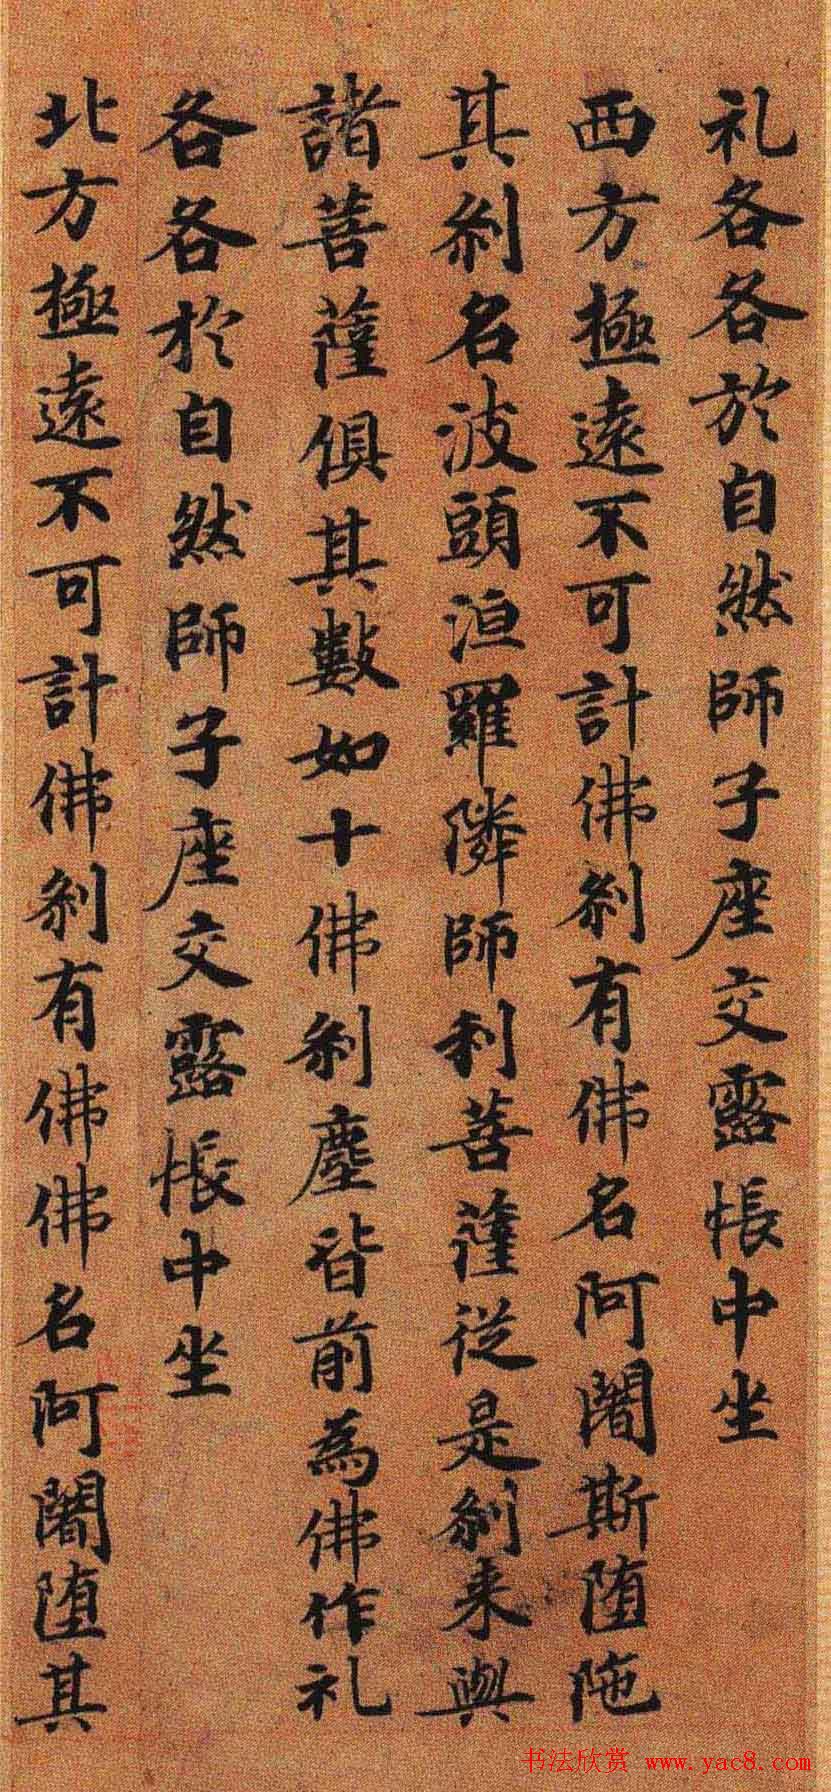 礼各各於自然師子座交露帳中坐
西方極遠不可計佛刹有佛名阿闍斯堕陁
其刹名波頭洹羅隣師利菩薩從是刹来與
諸菩薩俱其數如十佛刹塵皆前為佛作礼
各各於自然師子座交露帳中坐
北方極遠不可計佛刹有佛佛名阿闍堕其
书法欣赏 www.yac8.com